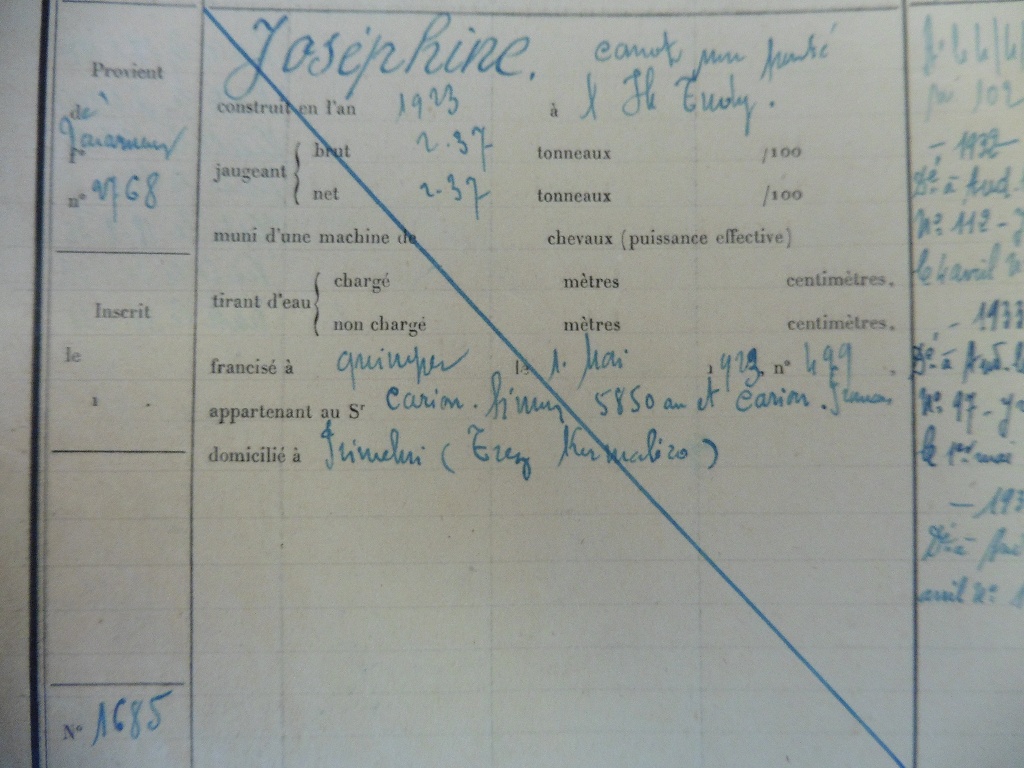 Provient
de
n° 2768
Inscrit
le
N° 1685
Joséphine. canot non ponté
construit en l'an 1923 à l'Ile Tudy.
jaugeant { brut 2.37 tonneaux /100
net 2.37 tonneaux /100
muni d'une machine de chevaux (puissance effective)
tirant d'eau { chargé mètres centimètres.
non chargé mètres centimètres.
francisé à quimper le 1. Mai 1923, n° 499.
appartenant au Sr Carion. 5850 au et Carion.
domicilié à (Kermaléro)
- 1932
Dé à Aud.
N° 112 -
le 4 avril
- 1933
Dé à Aud.
N° 97 -
le 1er mai
- 193
Dé à
avril N° 1